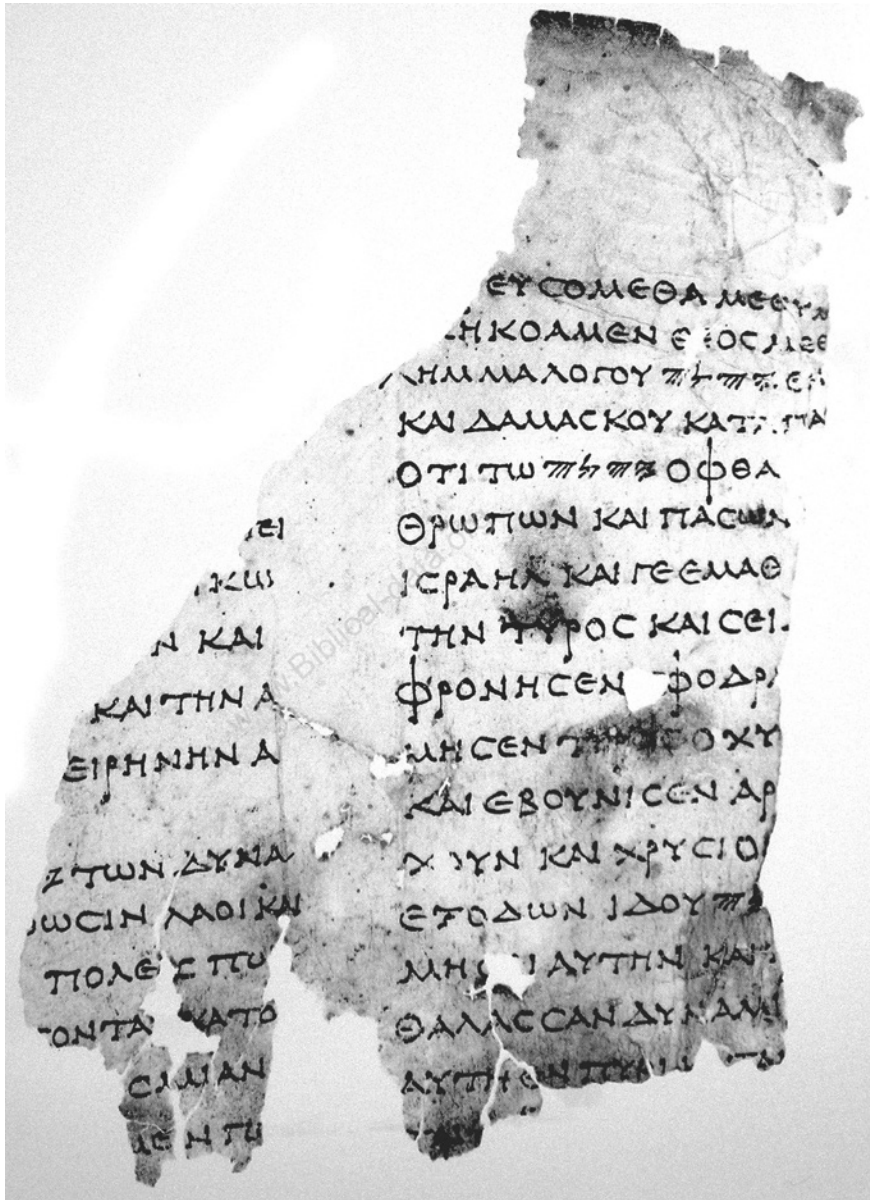 ΕΙ
ΚΩΙ
Ν ΚΑΙ
ΚΑΙ ΤΗΝ Α
ΕΙΡΗΝΗΝ Α
Ζ ΤΩΝ ΔΥΝΑ
ΩϹΙΝ ΛΑΟΙ ΚΑΙ
ΠΟΛΕΙϹ ΠΟ
ΟΝΤΑΙ ΚΑΤΟ
ϹΑΜΑΝ
ΕΝ ΠΟ
ΕΥϹΟΜΕΘΑ ΜΕΘ ΥΜ
ΚΗΚΟΑΜΕΝ ΘΕΟϹ ΜΕΘ
ΛΗΜΜΑ ΛΟΓΟΥ 𐤉𐤄𐤅𐤄 ΕΝ
ΚΑΙ ΔΑΜΑϹΚΟΥ ΚΑΤΑΠΑ
ΟΤΙ ΤΩ 𐤉𐤄𐤅𐤄 ΟΦΘΑ
ΘΡΩΠΩΝ ΚΑΙ ΠΑϹΩΝ
ΙϹΡΑΗΛ ΚΑΙ ΓΕ ΕΜΑΘ
ΤΗΝ ΤΥΡΟϹ ΚΑΙ ϹΕΙ
ΦΡΟΝΗϹΕΝ ΦΟΔΡΑ
ΜΗϹΕΝ ΤΥΡΟϹ ΟΧΥ
ΚΑΙ ΕΒΟΥΝΙϹΕΝ ΑΡ
ΧΟΥΝ ΚΑΙ ΧΡΥϹΙΟ
ΕΞΟΔΩΝ ΙΔΟΥ
ΜΗϹΕΙ ΑΥΤΗΝ ΚΑΙ
ΘΑΛΑϹϹΑΝ ΔΥΝΑΜΙ
ΑΥΤΗ ΕΝ ΠΥΡΙ
www.Biblical-data.org